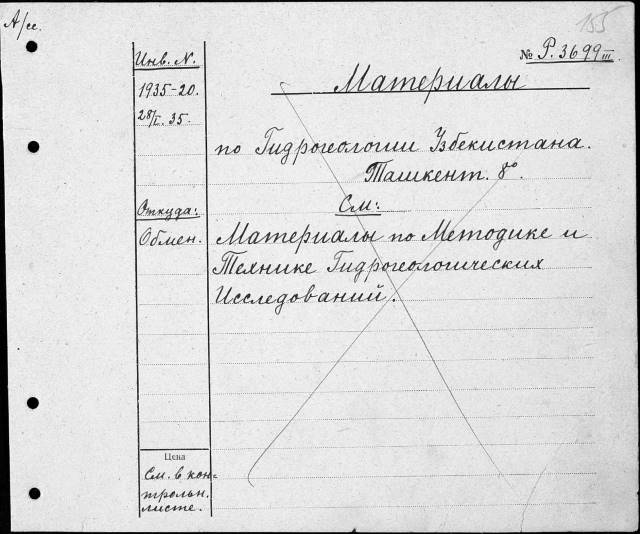 А/се.
155
Инв. N.
№ Р. 3699 III
1935-20.
Материалы
28/I. 35.
по Гидрогеологии Узбекистана.
Ташкент. 8°
Откуда:
См:
Обмен.
Материалы по Методике и
Технике Гидрогеологических
Исследований.
Цена
См. в кон-
трольн.
листе.